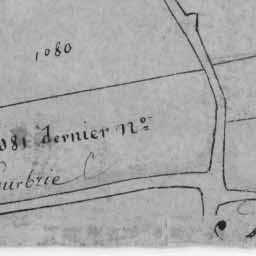 1080
081 dernier N°
ourbrie